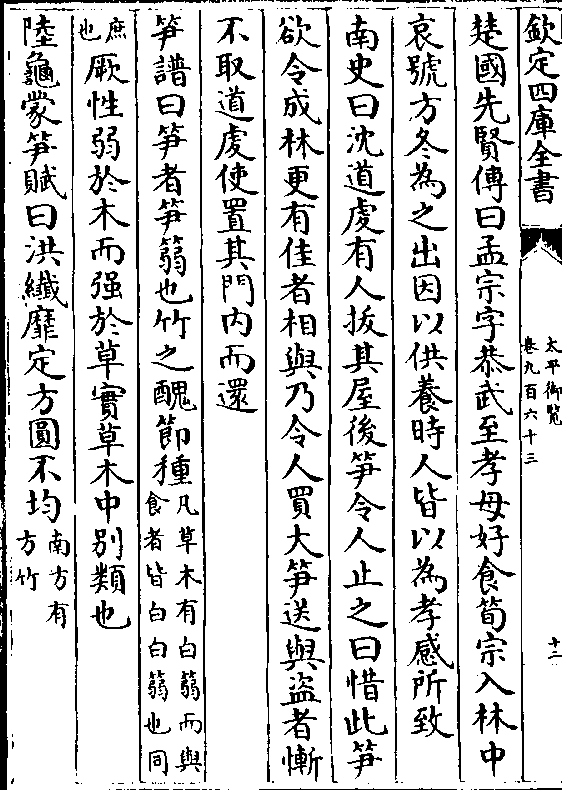 欽定四庫全書
太平御覧
卷九百六十三
十二
楚國先賢傳曰孟宗字恭武至孝母好食筍宗入林中
哀號方冬為之出因以供養時人皆以為孝感所致
南史曰沈道虔有人拔其屋後笋令人止之曰惜此笋
欲令成林更有佳者相與乃令人買大笋送與盜者慚
不取道虔使置其門内而還
笋譜曰笋者笋篛也竹之醜節種凡草木有白篛而與食者皆白白篛也同
庶也厥性弱於木而强於草實草木中别類也
陸龜蒙笋賦曰洪纖靡定方圓不均南方有方竹